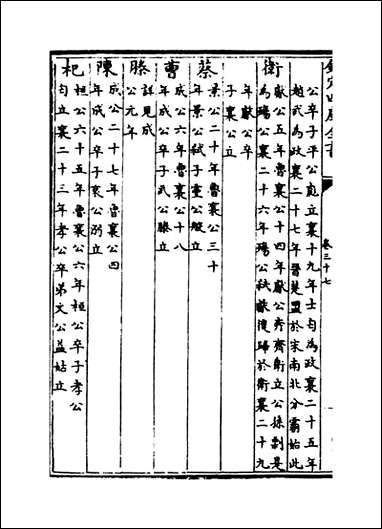 欽定四庫全書
卷三十七
公卒子平公彪立襄十九年士匄為政襄二十五年
趙武為政襄二十七年晉楚盟於宋南北分霸始此
衛
獻公五年魯襄公十四年獻公奔齊衛立公孫剽是
為殤公襄二十六年殤公弒獻復歸於衛襄二十九
年獻公卒
子襄公立
蔡
景公二十年魯襄公三十
年景公弒子靈公般立
曹
成公六年魯襄公十八
年成公卒子武公滕立
滕
詳見成
公元年
陳
成公二十七年魯襄公四
年成公卒子哀公弱立
杞
桓公六十五年魯襄公六年桓公卒子孝公
匄立襄二十三年孝公卒弟文公益姑立